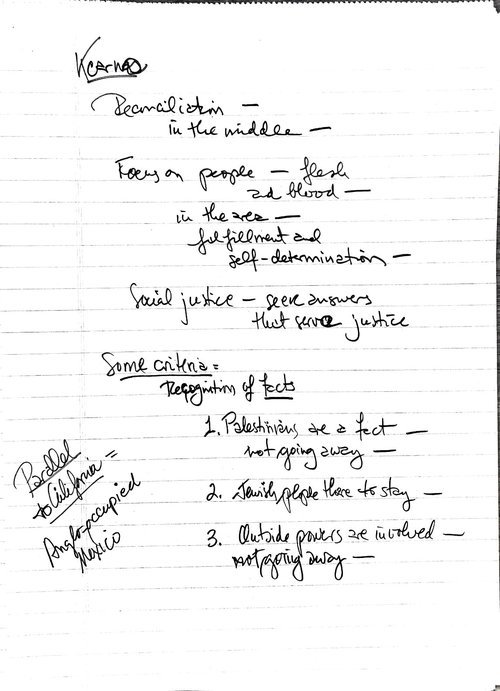 Kearns
Reconciliation —
in the middle —
Focus on people — flesh
and blood —
in the area —
fulfillment and
self-determination —
Social justice — seek answers
that serve justice
Some criteria =
Recognition of facts
1. Palestinians are a fact —
not going away —
2. Jewish people there to stay —
3. Outside powers are involved —
not going away —
Parallel
to California =
Anglo-occupied
Mexico